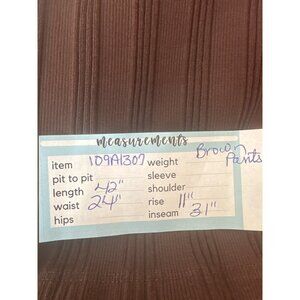 measurements
item 109A1307 weight Brown Pants
pit to pit sleeve
length 42" shoulder
waist 24" rise 11"
hips inseam 31"